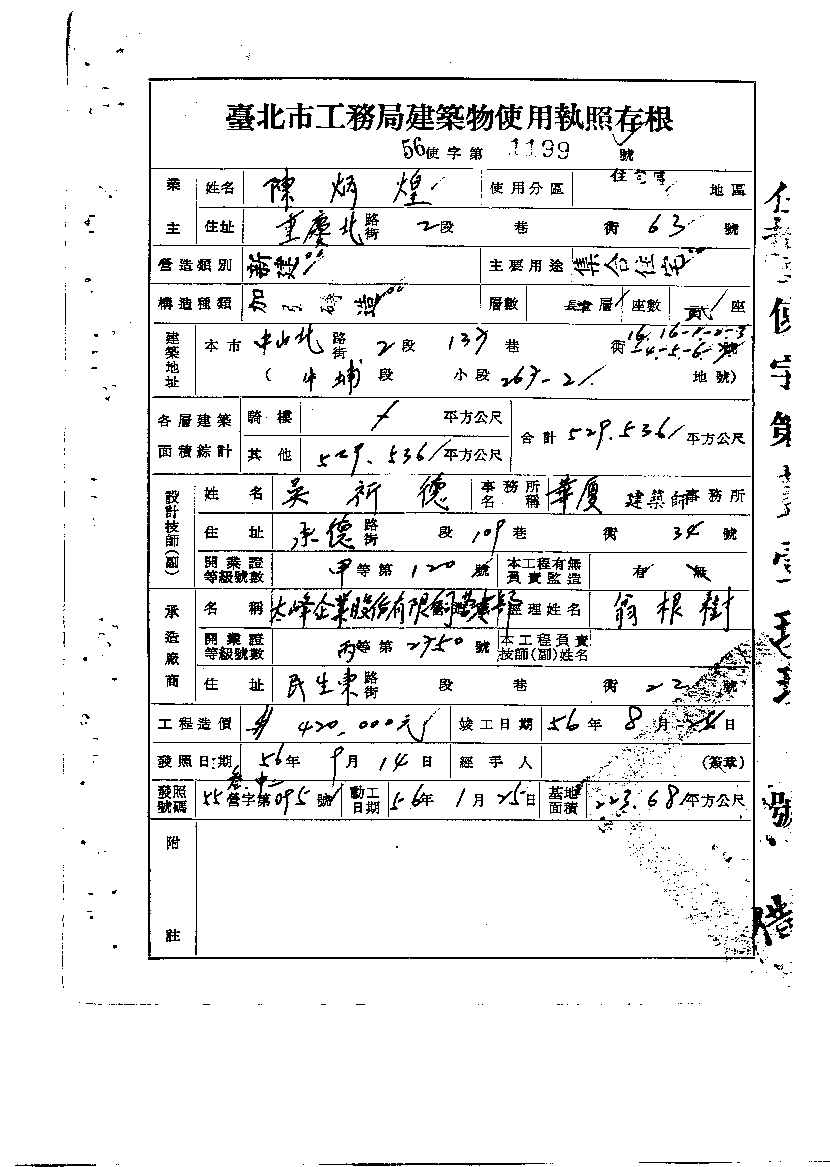 臺北市工務局建築物使用執照存根
56使字第 1199 號
業主 姓名 陳炳煌 使用分區 住宅 地區
住址 重慶北 路街 2段 巷 街 63 號
營造類別 新建 主要用途 集合住宅
構造種類 加引磚造 層數 層 座數 貳 座
建築地址 本市 中山北 路街 2段 137巷 街 號
( 中埔 段 小段 267-21 地號)
各層建築面積綜計 騎樓 平方公尺 合計 529.536 平方公尺
其他 529.536 平方公尺
設計技師(副) 姓名 吳祈德 事務所名稱 華廈 建築師事務所
住址 承德 路街 段 109巷 街 34 號
開業證等級號數 甲等第 120 號 本工程有無負責監造 有 無
承造廠商 名稱 太峰企業股份有限 經理姓名 翁根樹
開業證等級號數 丙等第 2750 號 本工程負責技師(副)姓名
住址 民生東 路街 段 巷 街 22 號
工程造價 420,000元 竣工日期 56年 8月 日
發照日期 56年 9月 14日 經手人 (簽章)
發照號碼 55營字第095號 動工日期 56年 1月 25日 基地面積 223.68 平方公尺
附註
使字第
號